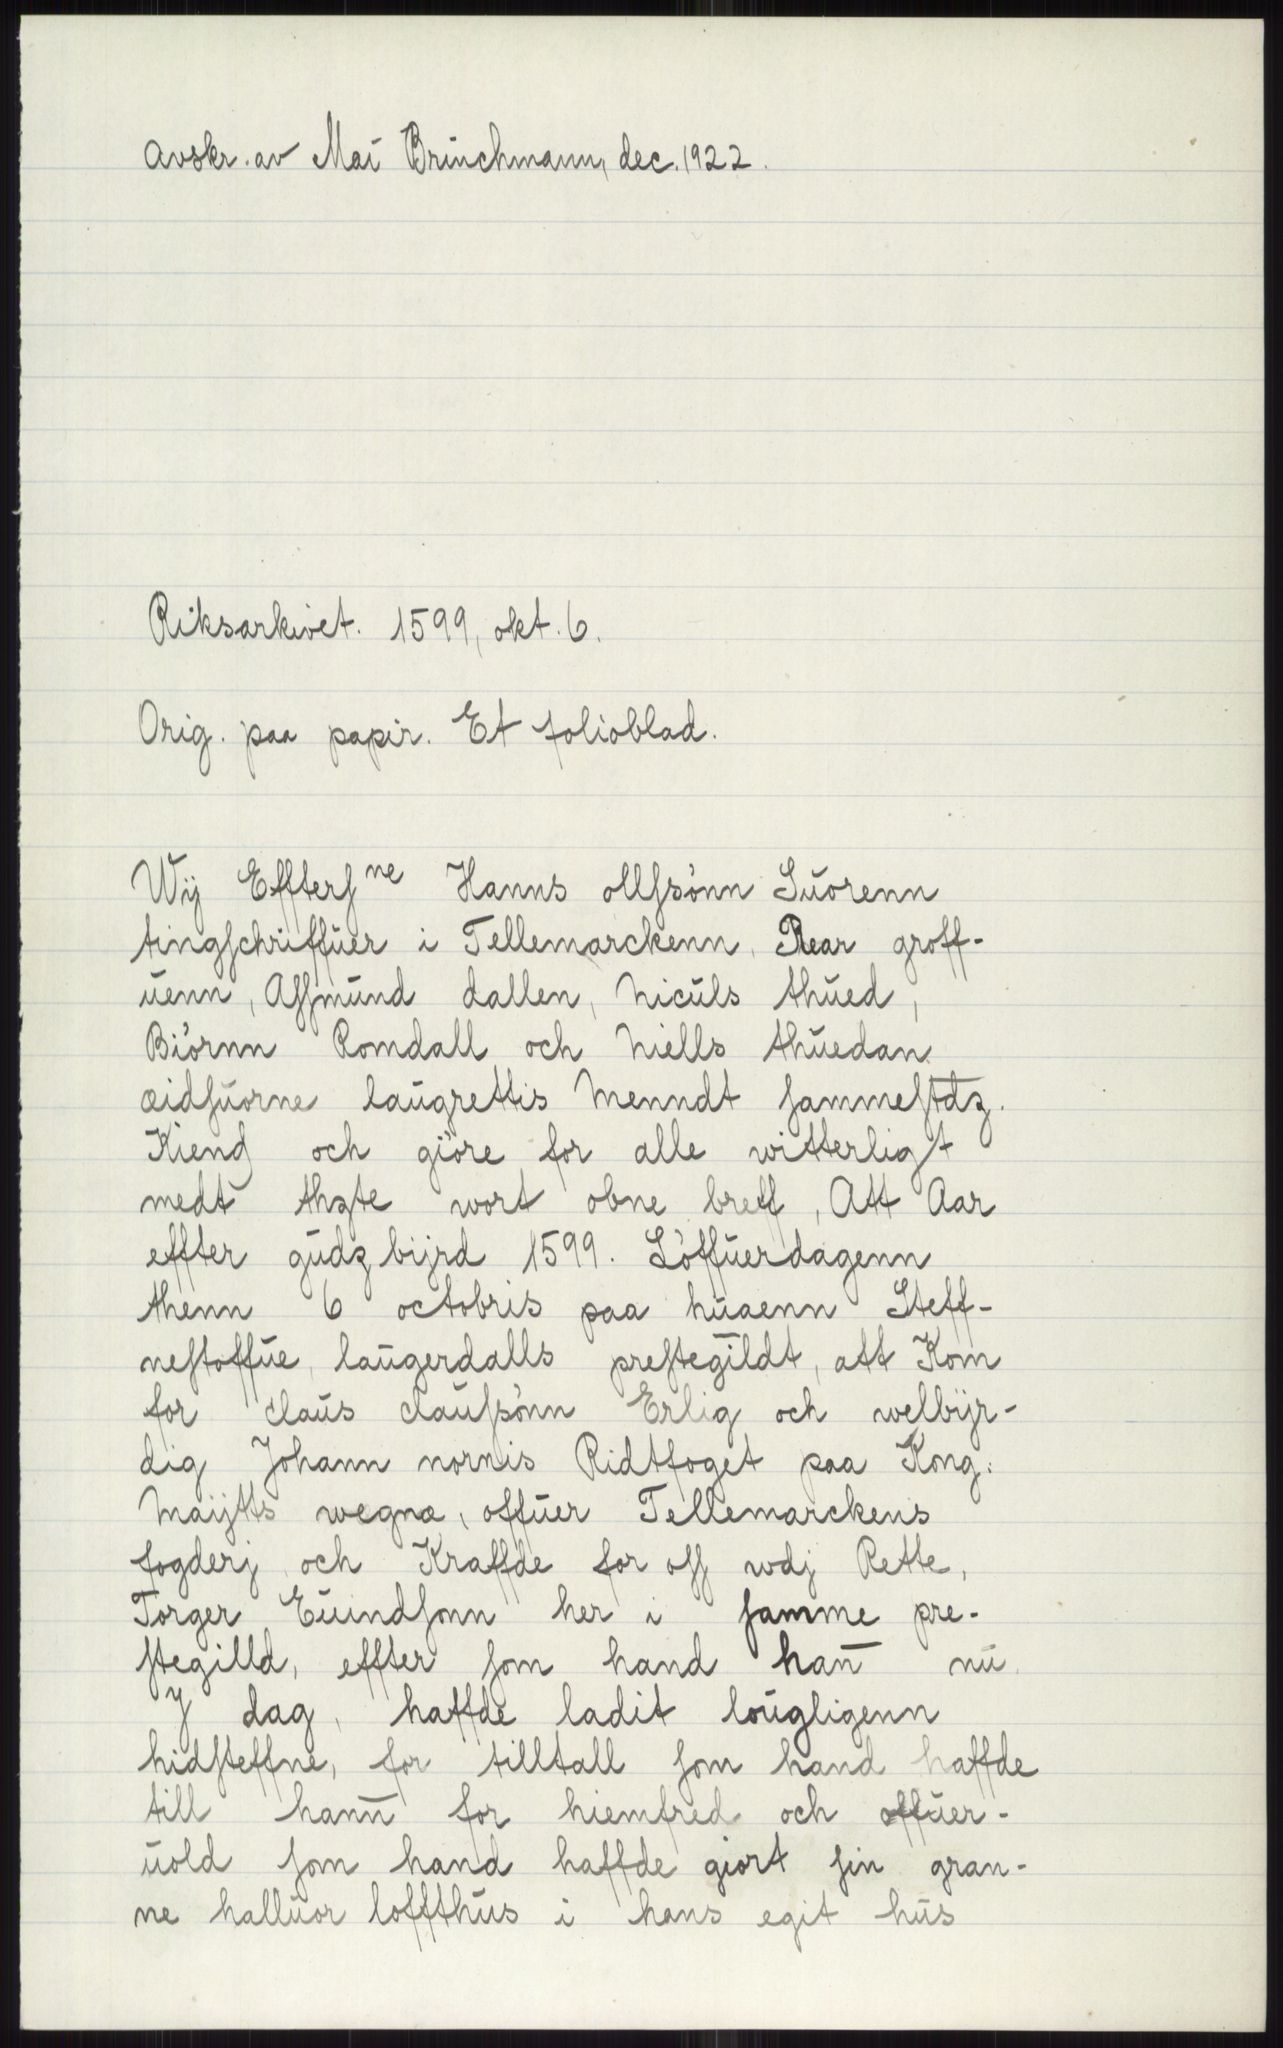 avskr. av Mai Brinchmann, dec. 1922.
Riksarkivet. 1599, okt. 6.
Orig. paa papir. Et folioblad.
Wij Effterſne Hanns ollſsönn Suorenn
tingſchriffuer i Tellemarckenn, Rear groff-
uenn, Aſſmund dallen, Niculs thued,
Biörnn Romdall och Niells thuedan
æidſuorne laugrettis Menndt ſammeſtdz.
Kiend och giöre for alle witterligſt
medt thzte wort obne breff, Att Aar
effter gudz bijrd 1599. Löffuerdagenn
thenn 6 octobris paa huaenn Steff-
neſtoffue, laugerdalls preſtegildt, att Kom
for claus clauſsönn Erlig och welbijr-
dig Johann nornis Ridtfoget paa Kong:
Maijtts wegnæ, offuer Tellemarckens
fogderj och Kraffde for oſſ wdj Rette,
Torger Euindſonn her i ſamme pre-
ſtegilld, effter ſom hand han̅ nu
J dag, haffde ladit lougligenn
hidſteffne, for tilltall ſom hand haffde
till hann̅ for hiemfred och offuer-
uold ſom hand haffde giort ſin gran-
ne halluor loffthus i hans egit hus